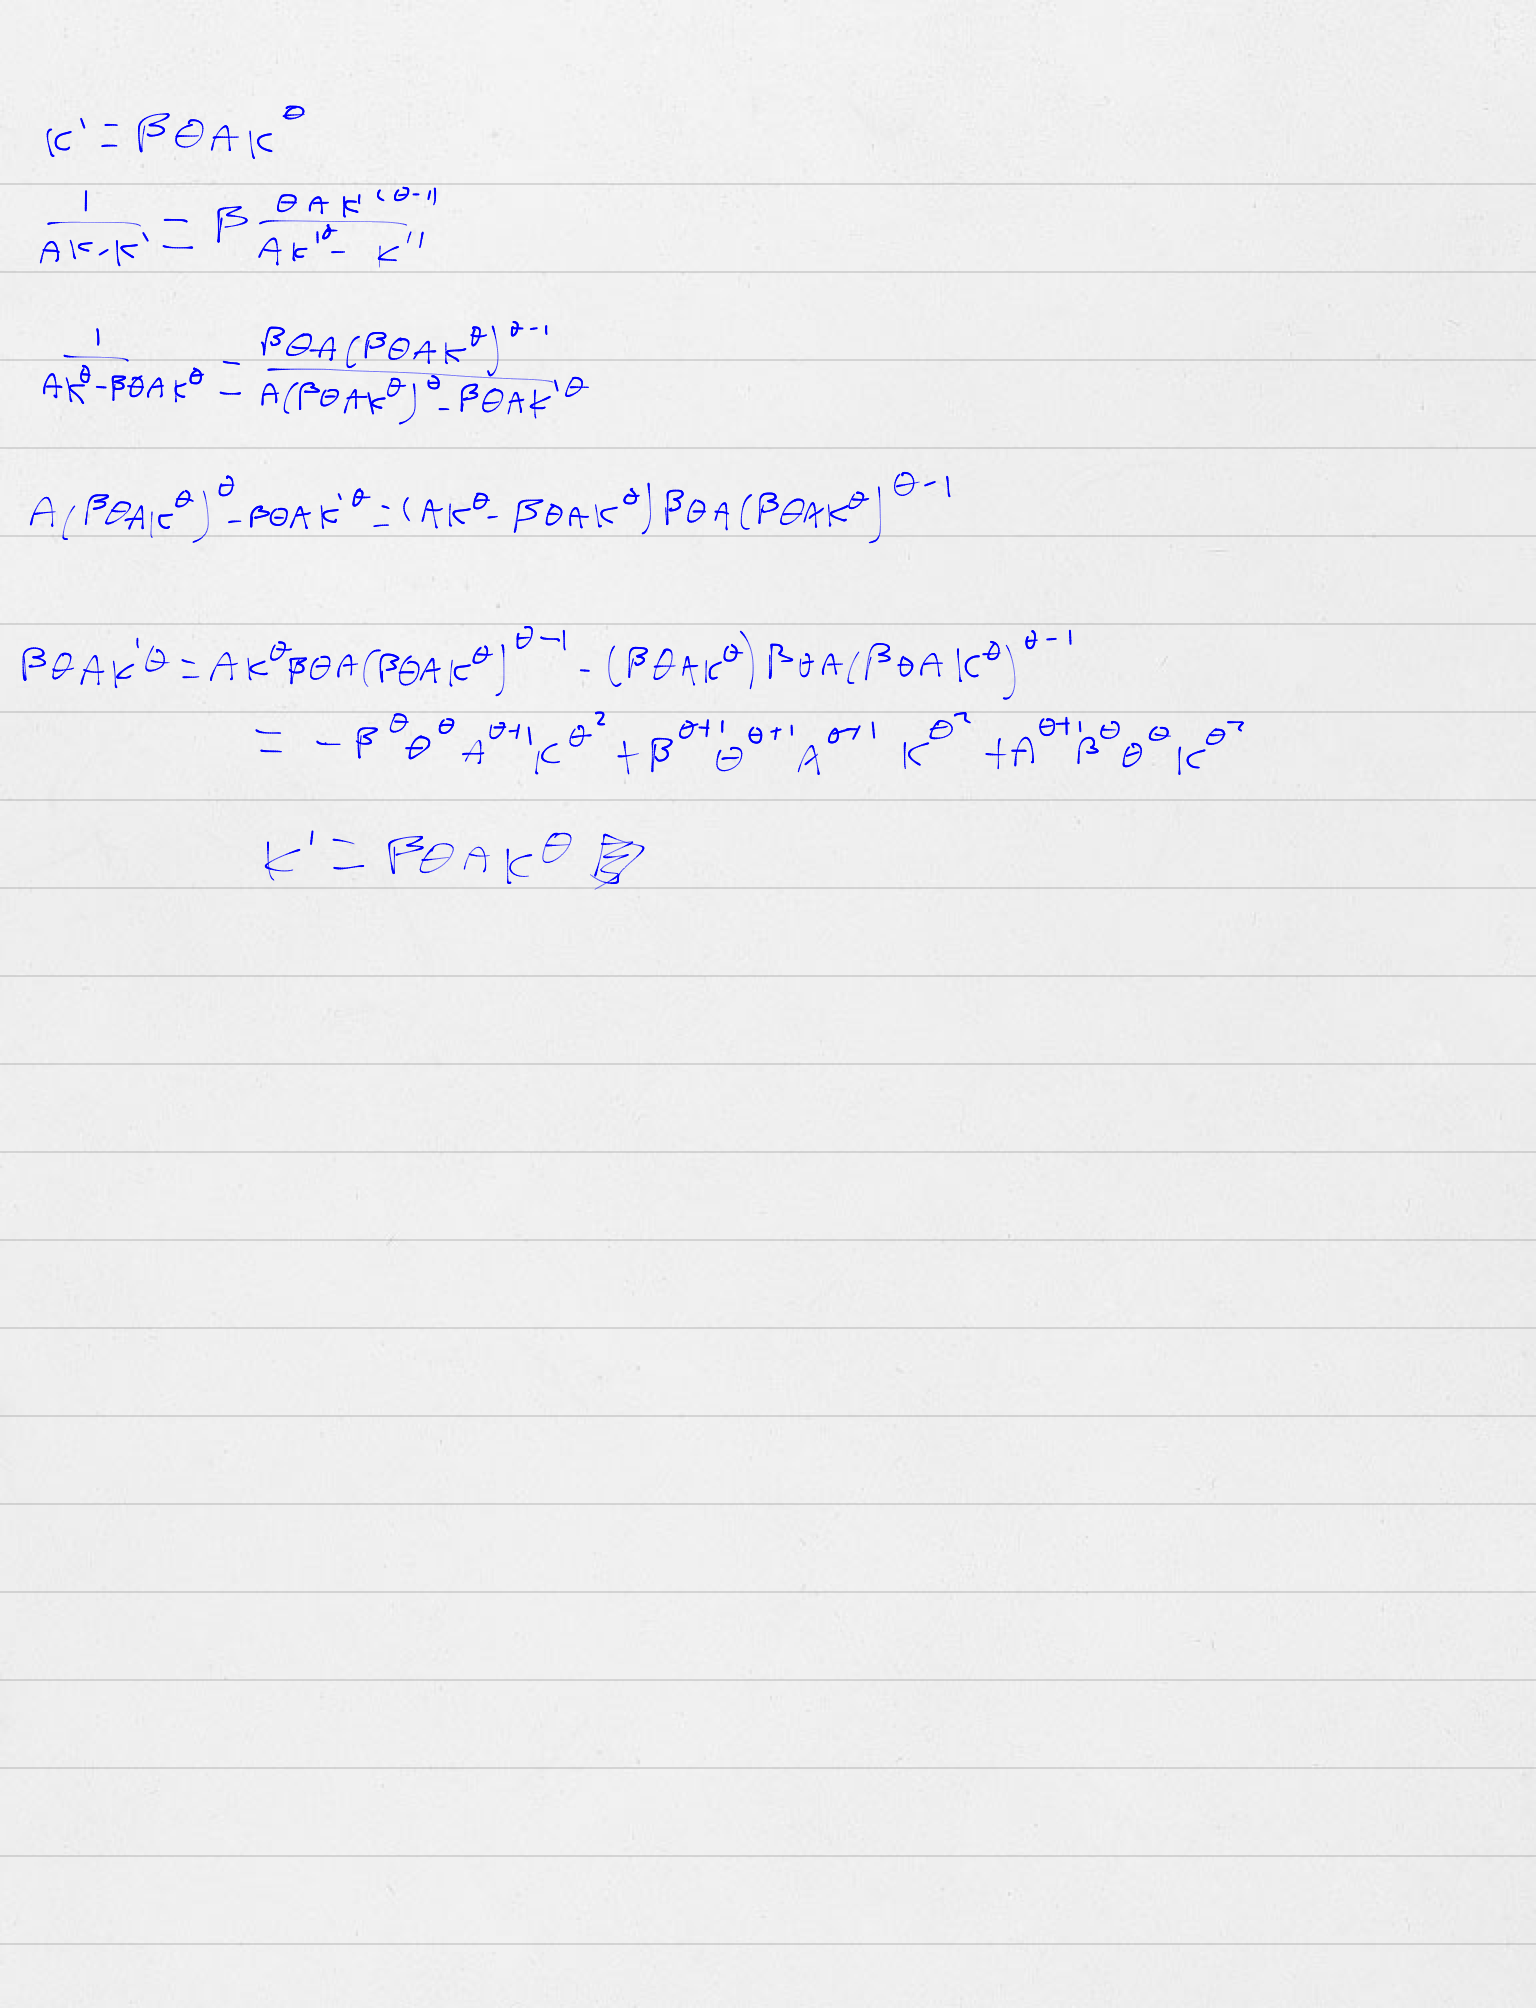 K' = βθAK^θ
1/(AK - K') = β θAK'^(θ-1)/(AK'^θ - K'')
1/(AK^θ - βθAK^θ) = βθA(βθAK^θ)^θ-1/(A(βθAK^θ)^θ - βθAK'^θ)
A(βθAK^θ)^θ - βθAK'^θ = (AK^θ - βθAK^θ)βθA(βθAK^θ)^θ-1
βθAK'^θ = AK^θβθA(βθAK^θ)^θ-1 - (βθAK^θ)βθA(βθAK^θ)^θ-1
= -β^θθ^θA^θ+1K^θ² + β^θ+1θ^θ+1A^θ+1K^θ² + A^θ+1β^θθ^θK^θ²
K' = βθAK^θ